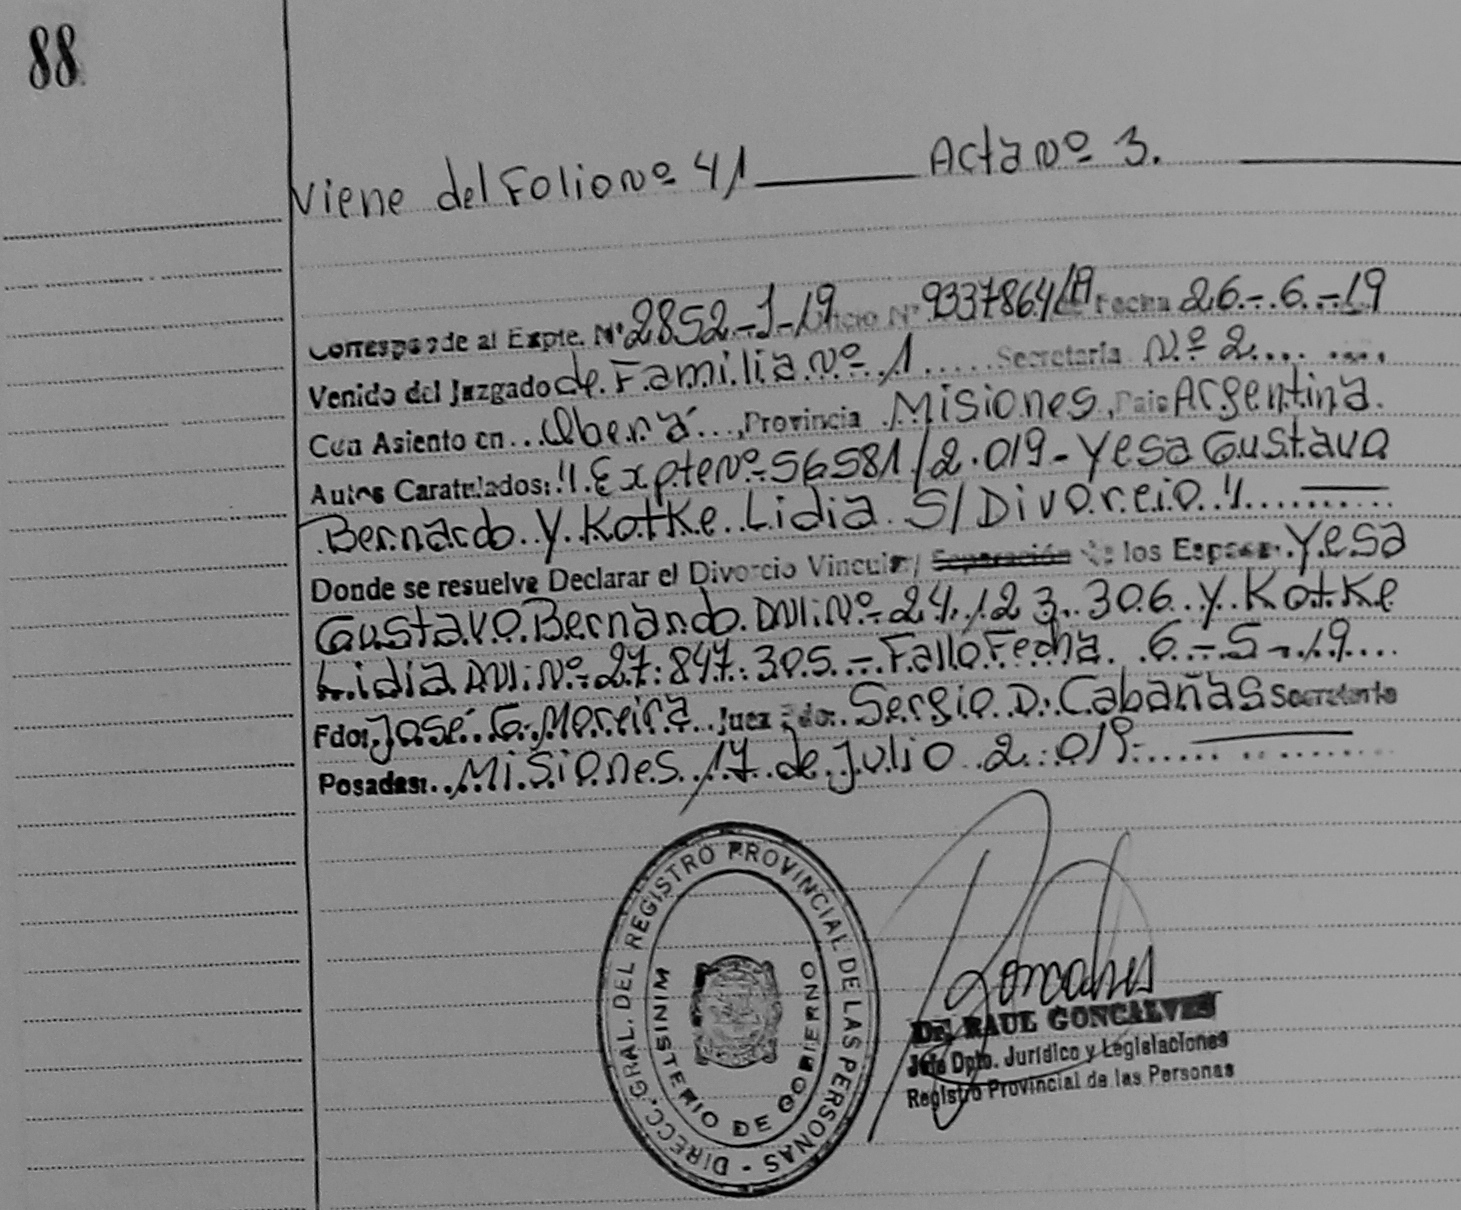 88
Viene del Folio Nº 41 Acta Nº 3.
Corresponde al Expte. Nº 2852-J-19 Oficio Nº 9337864/19 Fecha 26-6-19
Venido del Juzgado de Familia Nº 1 Secretaría Nº 2
Con Asiento en Oberá, Provincia Misiones, Pais Argentina.
Autos Caratulados: "Expte Nº 56581/2.019 - Yesa Gustavo
Bernardo y Kotke Lidia S/Divorcio"
Donde se resuelve Declarar el Divorcio Vincular/ Separación de los Esposos Yesa
Gustavo Bernardo DNI. Nº 24.123.306 y Kotke
Lidia DNI. Nº 27.847.305.- Fallo Fecha 6-5-19
Fdo: José G. Moreira Juez Fdo: Sergio D. Cabañas Secretario
Posadas: Misiones 17 de Julio 2.019-
DIRECC. GRAL. DEL REGISTRO PROVINCIAL DE LAS PERSONAS -
MINISTERIO DE GOBIERNO
Goncalves
Dr. RAUL GONCALVES
Jefe Dpto. Jurídico y Legislaciones
Registro Provincial de las Personas